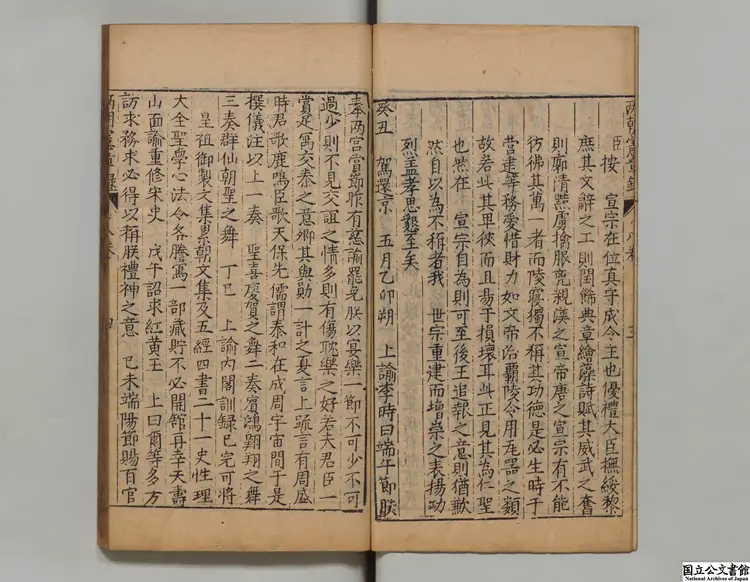 臣按 宣宗在位真守成令主也優禮大臣撫綏黎
庶其文辭之工則閏餙典章繪藻詩賦其威武之奮
則廓清黠虜擒服兇親漢之宣帝唐之宣宗有不能
彷彿其萬一者而陵寢獨不稱其功德是必生時于
营建等務愛惜財力如文帝治霸陵令用瓦器之類
故若此其卑狹而且易于損壞耳此正見其為仁聖
也然在 宣宗自為則可至後王追報之意則猶歉
然自以為不稱者我 世宗重建而增崇之表揚功
烈孟孝思懇至矣
癸丑 駕還京 五月乙卯朔 上諭李時曰端午節朕
奉两宫當節昨有慈諭罷免朕以宴樂一節不可少不可
過少則不見交誼之情多則有傷耽樂之好若夫君臣一
賞足寓交泰之意卿其與勛一計之夏言上䟽言有周盛
時君歌鹿鳴臣歌天保先儒謂泰和在成周宇宙間于是
撰儀注以上一奏 聖喜慶賀之舞二奏賓鴻翺翔之舞
三奏群仙朝聖之舞 丁巳 上諭内閣訓録已完可將
皇祖御製文集累朝文集及五經四書二十一史性理
大全聖學心法令各謄寫一部藏貯不必開舘再幸天壽
山面諭重修宋史 戊午詔求紅黄玉 上曰爾等多方
訪求務求必得以稱朕禮神之意 己未端陽節賜百官
国立公文書館
National Archives of Japan